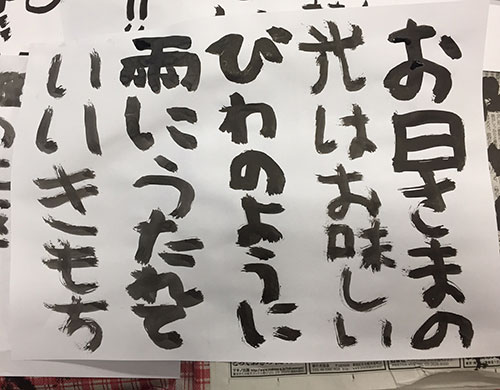 お日さまの
光はお味しい
びわのように
雨にうたれて
いいきもち
!!